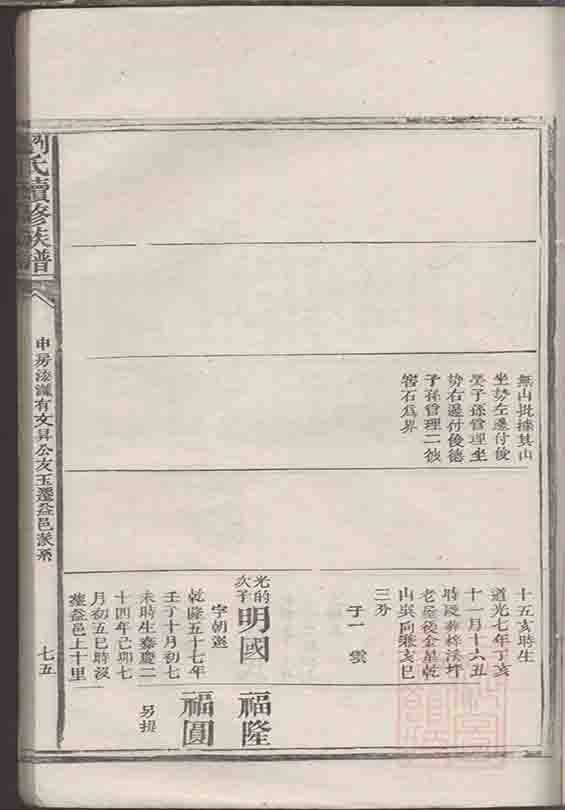 無山批據其山
坐勢左邊付俊
晏子孫管理坐
勢右邊付俊德
子孫管理二彼
窖石為界
十五亥時生
道光七年丁亥
十一月十六丑
時歿葬梓溪坪
老屋後金星乾
山巽向兼亥巳
三分
子一 雲
光的次子
明國
字朝選
乾隆五十七年
壬子十月初七
未時生嘉慶二
十四年己卯七
月初五巳時沒
葬益邑上十里
福隆
福圓
另提
劉氏續修族譜
申房漆灘有文昇公友玉遷益邑派系
七五